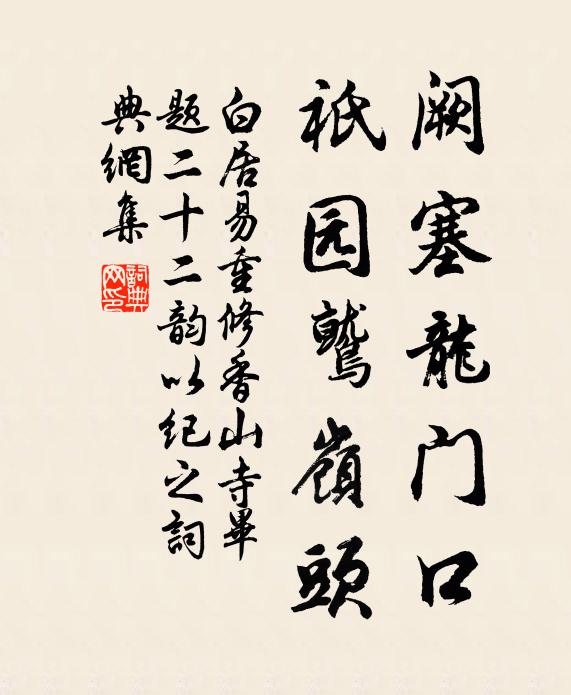 阙塞龍门口
祇园鷲嶺頭
白居易重修香山寺畢
题二十二韵以纪之詞
典網集
詞典网印